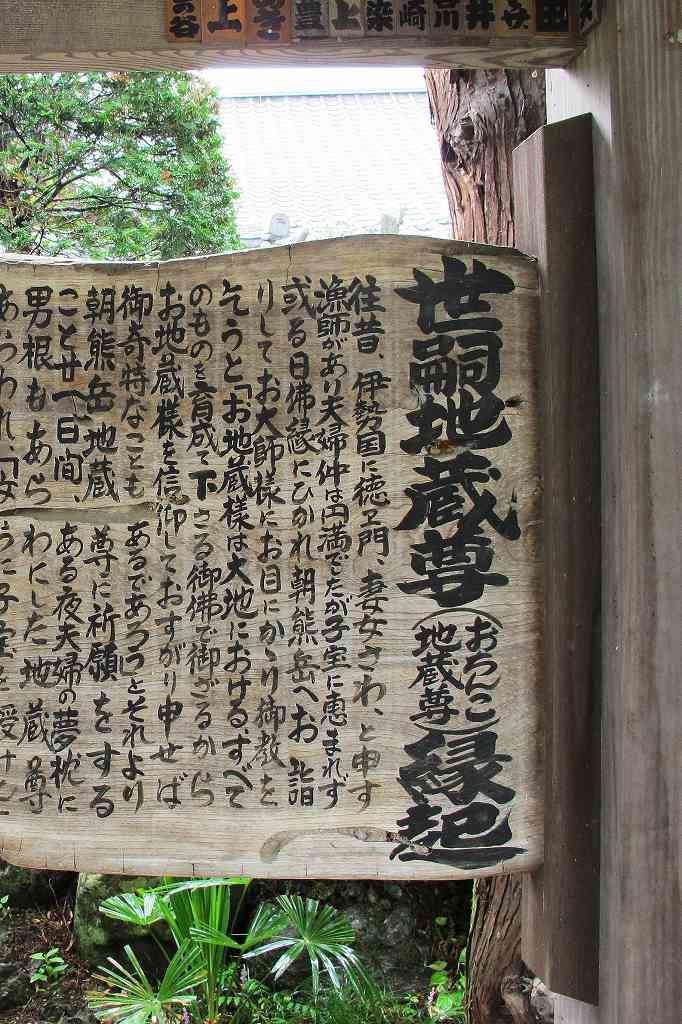 世嗣地蔵尊(おちんこ地蔵尊)縁起
往昔、伊勢国に徳ヱ門、妻女さわ、と申す
漁師があり夫婦仲は円満でしたが子宝に恵まれず
或る日佛縁にひかれ朝熊岳へお詣
りしてお大師様にお目にかゝり御教を
乞うと「お地蔵様は大地におけるすべて
のものを育成て下さる御佛で御ざるから
お地蔵様を信仰しておすがり申せば
御奇特なことも あるであろうとそれより
朝熊岳地蔵 尊に祈願をする
こと廿一日間、ある夜夫婦の夢枕に
男根もあら わにした地蔵尊
あらわれ「 うに子宝を授けん
谷
上
豊
上
染
崎
川
井
田